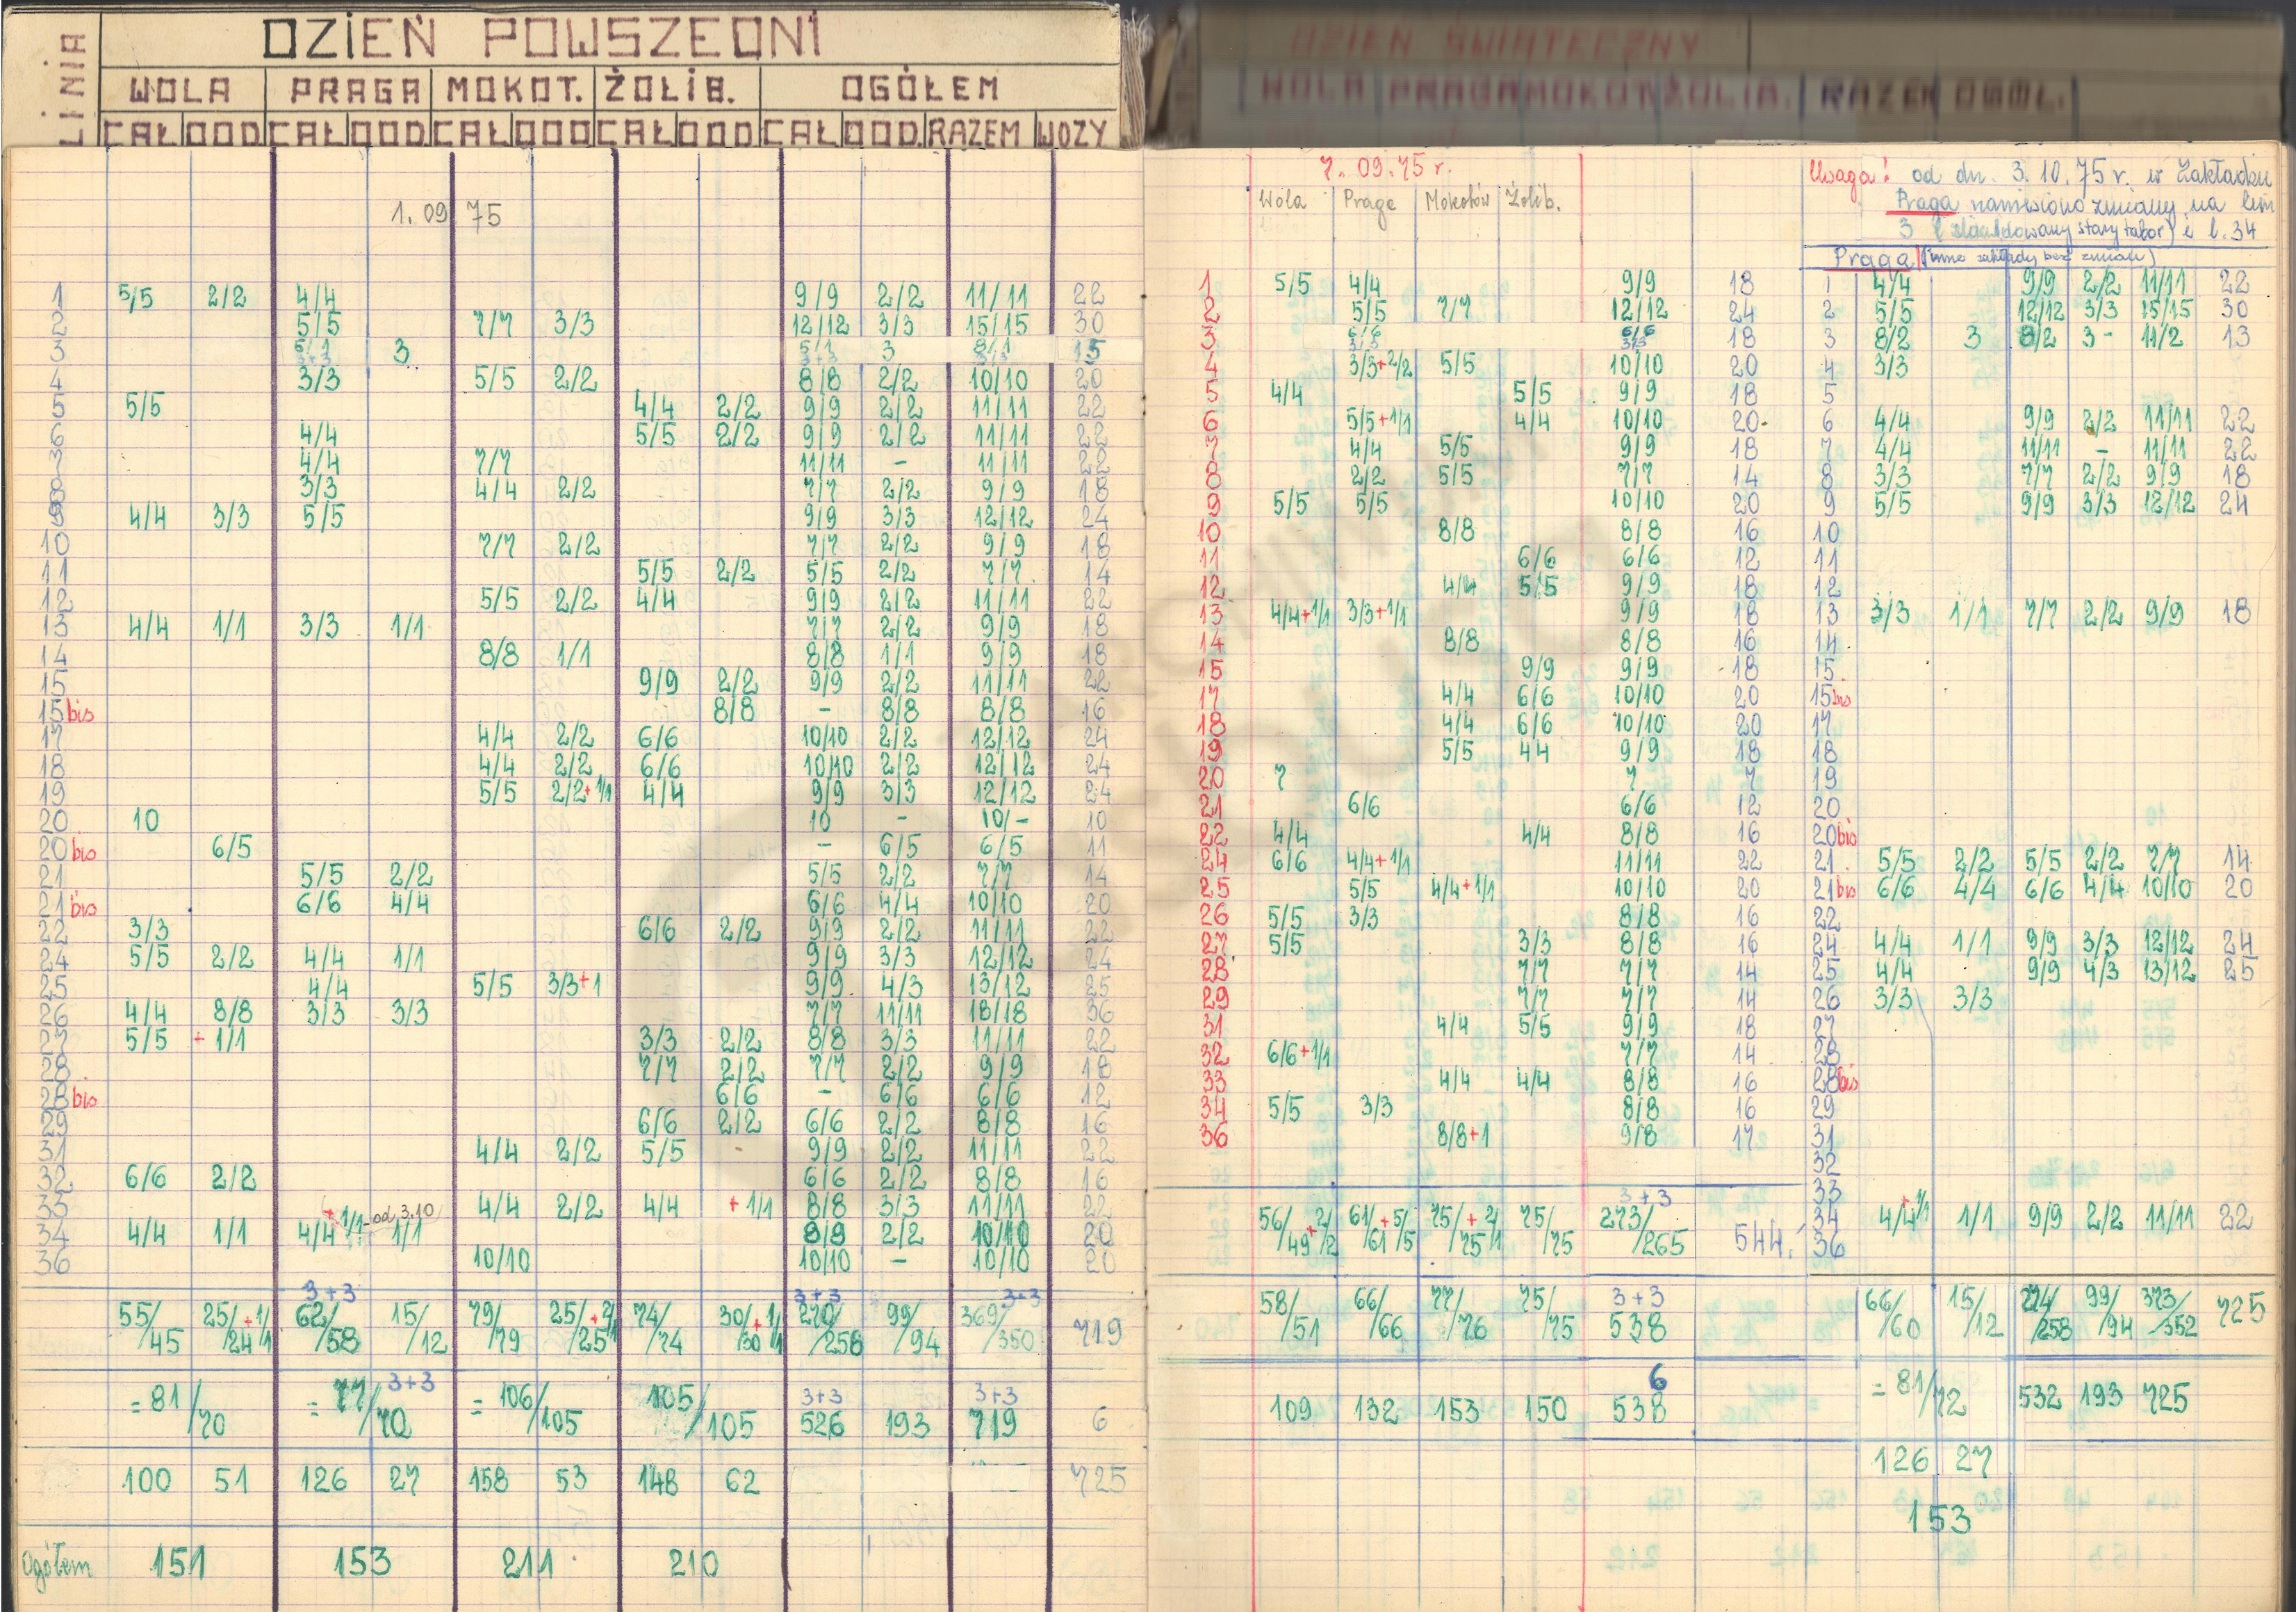 LINIA DZIEŃ POWSZEDNI
WOLA PRAGA MOKOT. ŻOLIB. OGÓŁEM
CAŁ DOD CAŁ DOD CAŁ DOD CAŁ DOD CAŁ DOD RAZEM WOZY
1.09.75
1 5/5 2/2 4/4 9/9 2/2 11/11 22
2 5/5 7/7 3/3 12/12 3/3 15/15 30
3 3 3 8/1 15
4 3/3 5/5 2/2 8/8 2/2 10/10 20
5 5/5 4/4 2/2 9/9 2/2 11/11 22
6 4/4 5/5 2/2 9/9 2/2 11/11 22
7 4/4 7/7 11/11 - 11/11 22
8 3/3 4/4 2/2 7/7 2/2 9/9 18
9 4/4 3/3 5/5 9/9 3/3 12/12 24
10 7/7 2/2 7/7 2/2 9/9 18
11 5/5 2/2 5/5 2/2 7/7 14
12 5/5 2/2 4/4 9/9 2/2 11/11 22
13 4/4 1/1 3/3 1/1 7/7 2/2 9/9 18
14 8/8 1/1 8/8 1/1 9/9 18
15 9/9 2/2 9/9 2/2 11/11 22
15bis 8/8 - 8/8 8/8 16
17 4/4 2/2 6/6 10/10 2/2 12/12 24
18 4/4 2/2 6/6 10/10 2/2 12/12 24
19 5/5 2/2+1/1 4/4 9/9 3/3 12/12 24
20 10 10 - 10/- 10
20bis 6/5 - 6/5 6/5 11
21 5/5 2/2 5/5 2/2 7/7 14
21bis 6/6 4/4 6/6 4/4 10/10 20
22 3/3 6/6 2/2 9/9 2/2 11/11 22
24 5/5 2/2 4/4 1/1 9/9 3/3 12/12 24
25 4/4 5/5 3/3+1 9/9 4/3 13/12 25
26 4/4 8/8 3/3 3/3 7/7 11/11 18/18 36
27 5/5 + 1/1 3/3 2/2 8/8 3/3 11/11 22
28 7/7 2/2 7/7 2/2 9/9 18
28bis 6/6 - 6/6 6/6 12
29 6/6 2/2 6/6 2/2 8/8 16
31 4/4 2/2 5/5 9/9 2/2 11/11 22
32 6/6 2/2 6/6 2/2 8/8 16
33 4/4 2/2 4/4 + 1/1 8/8 3/3 11/11 22
34 4/4 1/1 4/4 + 1/1 - od 3.10 1/1 8/8 2/2 10/10 20
36 10/10 10/10 - 10/10 20
3+3 3+3 3+3
55/45 25/24 +1/1 62/58 15/12 79/79 25/25 +2/1 74/74 30/30 +1/1 270/258 99/94 369/350 719
3+3 3+3 3+3
= 81/70 = 77/70 = 106/105 105/105 526 193 719 6
100 51 126 27 158 53 148 62 725
Ogółem 151 153 211 210
DZIEŃ ŚWIĄTECZNY
WOLA PRAGA MOKOT ŻOLIB. RAZEM OGÓŁ.
7.09.75 r.
Wola Praga Mokotów Żolib.
1 5/5 4/4 9/9 18
2 5/5 7/7 12/12 24
3 6/6 3/3 6/6 3/3 18
4 3/3+2/2 5/5 10/10 20
5 4/4 5/5 9/9 18
6 5/5+1/1 4/4 10/10 20
7 4/4 5/5 9/9 18
8 2/2 5/5 7/7 14
9 5/5 5/5 10/10 20
10 8/8 8/8 16
11 6/6 6/6 12
12 4/4 5/5 9/9 18
13 4/4+1/1 3/3+1/1 9/9 18
14 8/8 8/8 16
15 9/9 9/9 18
17 4/4 6/6 10/10 20
18 4/4 6/6 10/10 20
19 5/5 44 9/9 18
20 7 7 7
21 6/6 6/6 12
22 4/4 4/4 8/8 16
24 6/6 4/4+1/1 11/11 22
25 5/5 4/4+1/1 10/10 20
26 5/5 3/3 8/8 16
27 5/5 3/3 8/8 16
28 7/7 7/7 14
29 7/7 7/7 14
31 4/4 5/5 9/9 18
32 6/6+1/1 7/7 14
33 4/4 4/4 8/8 16
34 5/5 3/3 8/8 16
36 8/8+1 9/8 17
3+3
56/49 +2/2 61/61 +5/5 75/75 +2/1 75/75 273/265 544.
58/51 66/66 77/76 75/75 3+3 538
6
109 132 153 150 538
Uwaga! od dn. 3.10.75 r. w Zakładzie
Praga naniesiono zmiany na lin
3 (zlikwidowany stary tabor) i l. 34
Praga (inne zakłady bez zmian)
1 4/4 9/9 2/2 11/11 22
2 5/5 12/12 3/3 15/15 30
3 8/2 3 8/2 3- 11/2 13
4 3/3
5
6 4/4 9/9 2/2 11/11 22
7 4/4 11/11 - 11/11 22
8 3/3 7/7 2/2 9/9 18
9 5/5 9/9 3/3 12/12 24
10
11
12
13 3/3 1/1 7/7 2/2 9/9 18
14
15
15bis
17
18
19
20
20bis
21 5/5 2/2 5/5 2/2 7/7 14
21bis 6/6 4/4 6/6 4/4 10/10 20
22
24 4/4 1/1 9/9 3/3 12/12 24
25 4/4 9/9 4/3 13/12 25
26 3/3 3/3
27
28
28bis
29
31
32
33
34 4/4+1/1 1/1 9/9 2/2 11/11 22
36
66/60 15/12 274/258 99/94 373/352 725
= 81/72 532 193 725
126 27
153